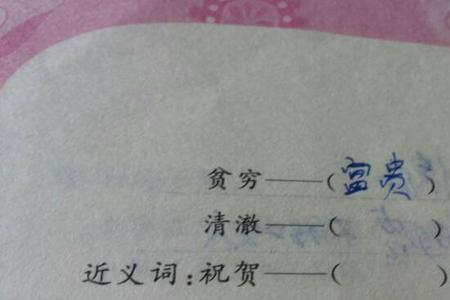 贫穷——(富贵)
清澈——( )
近义词:祝贺——( )